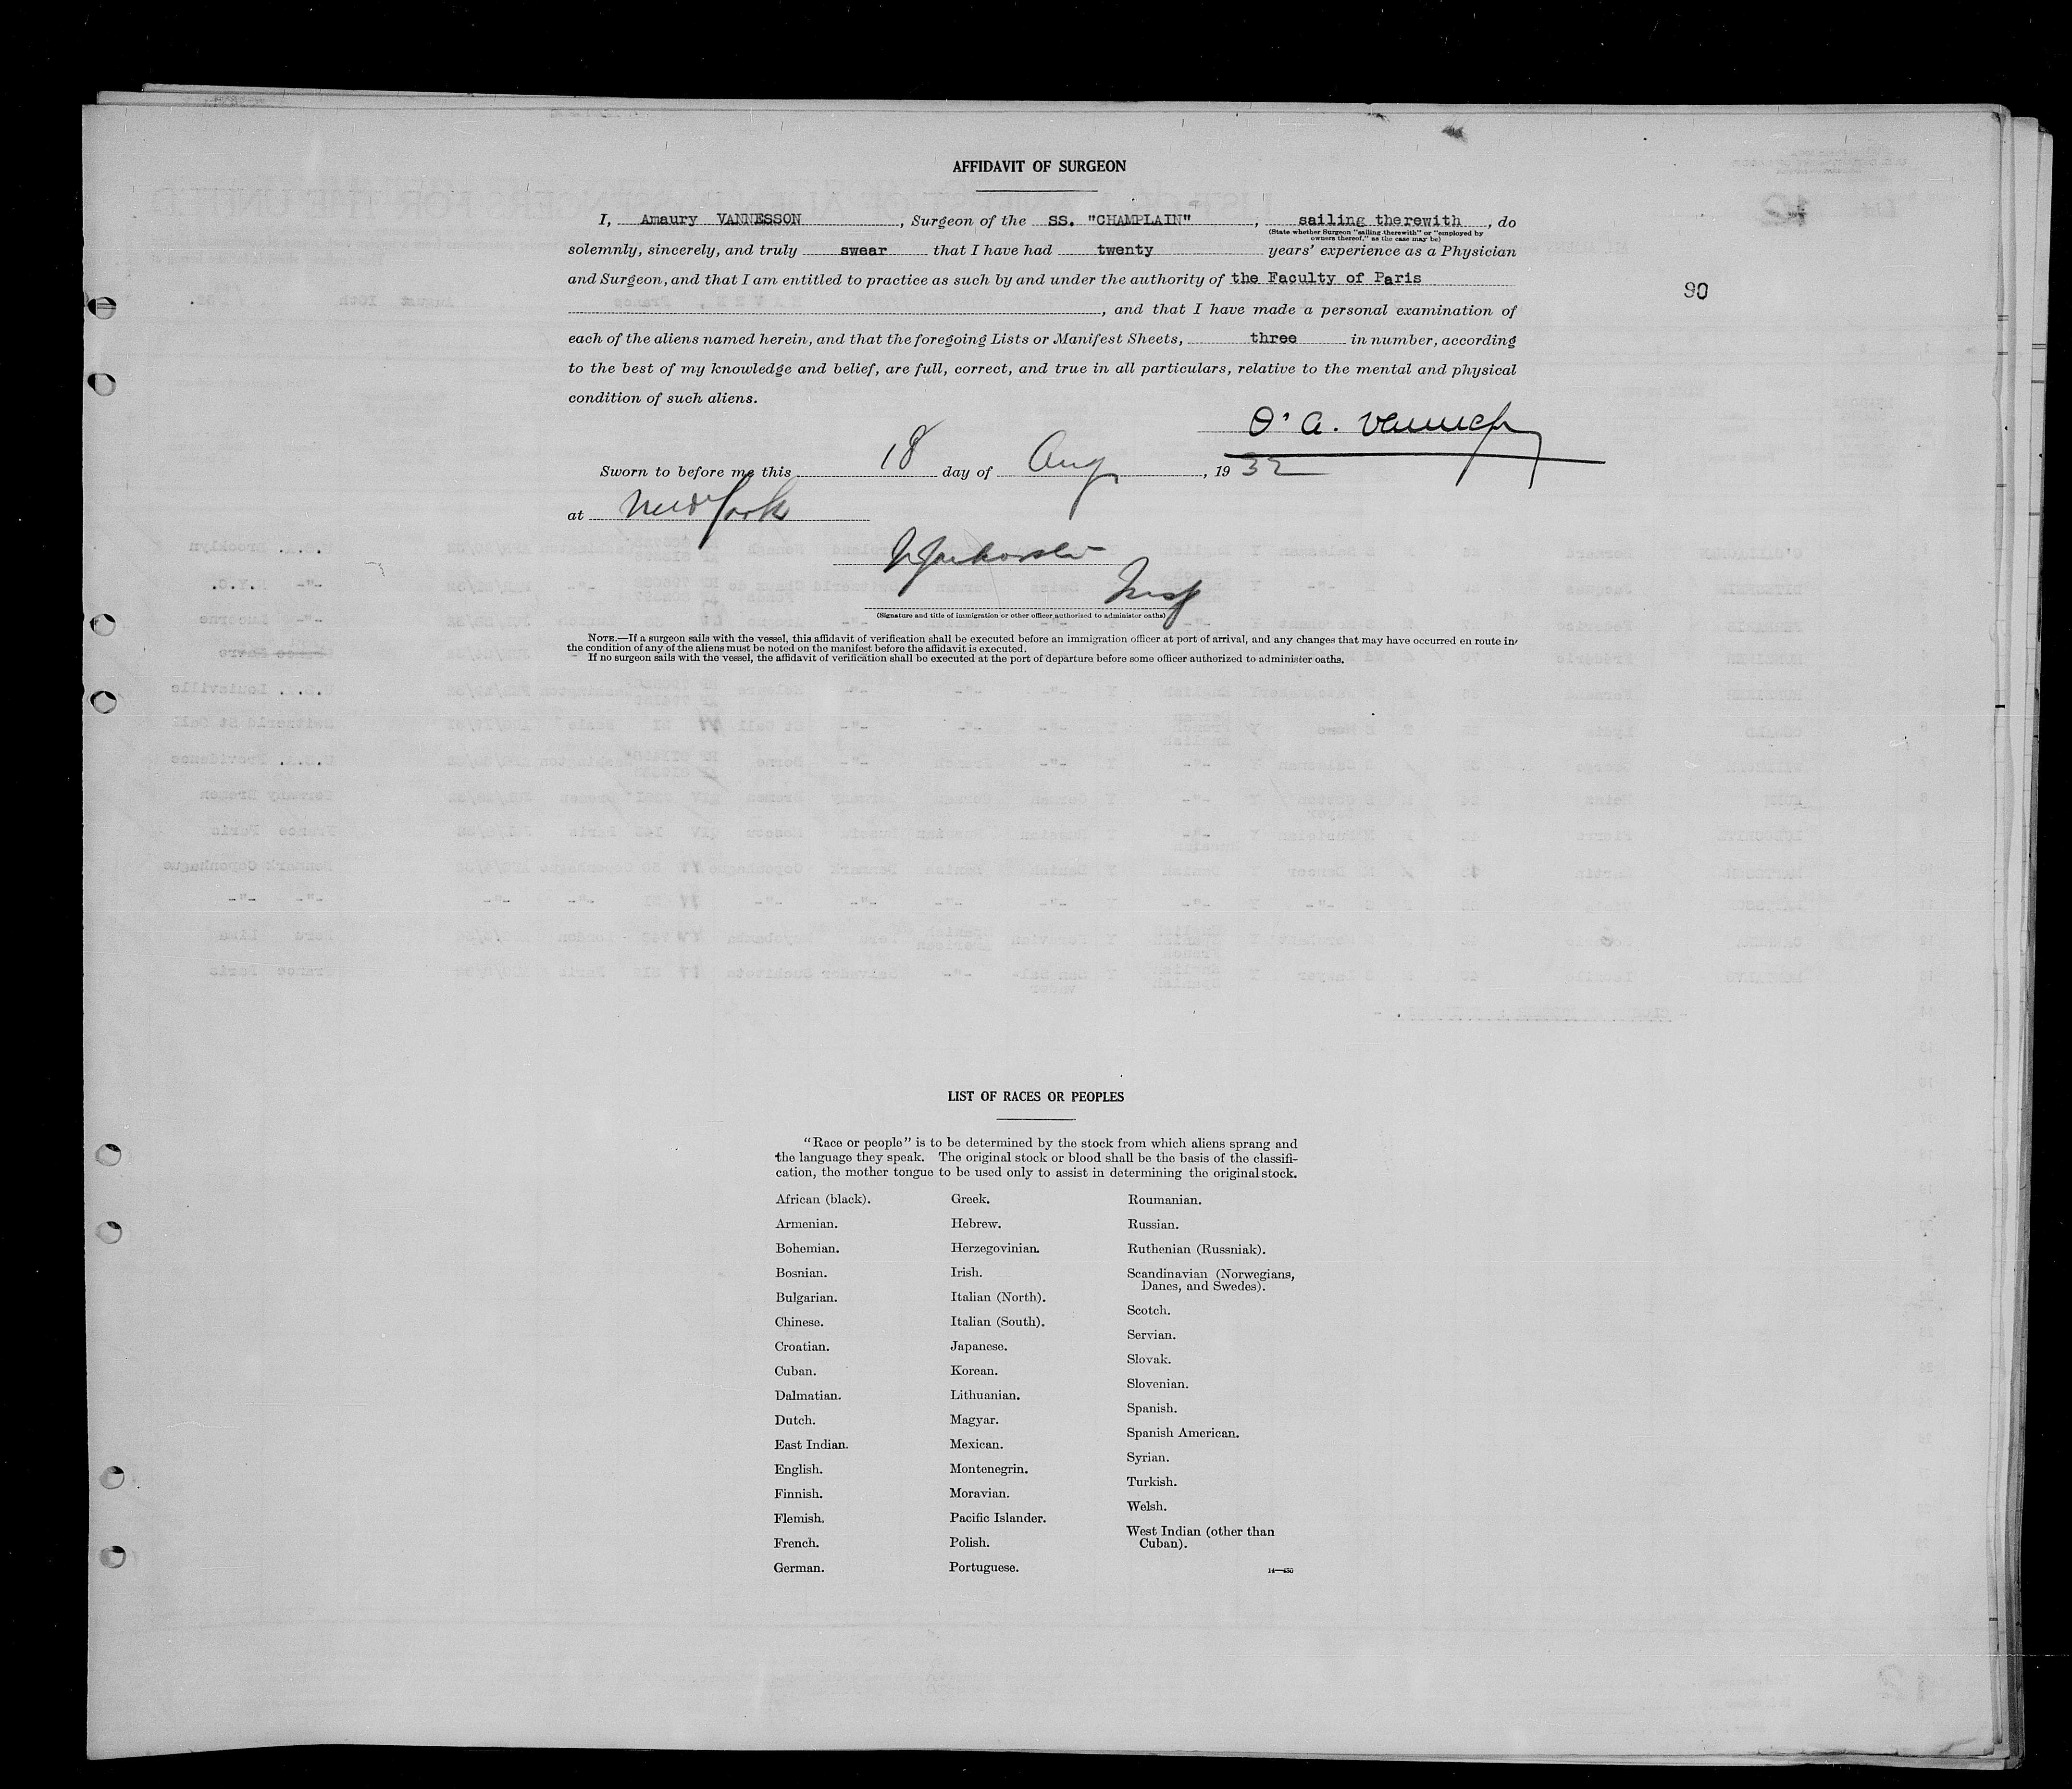 AFFIDAVIT OF SURGEON
I, Amaury VANNESSON, Surgeon of the SS. "CHAMPLAIN", sailing therewith, do
(State whether Surgeon "sailing therewith" or "employed by
owners thereof," as the case may be)
solemnly, sincerely, and truly swear that I have had twenty years' experience as a Physician
and Surgeon, and that I am entitled to practice as such by and under the authority of the Faculty of Paris
90
, and that I have made a personal examination of
each of the aliens named herein, and that the foregoing Lists or Manifest Sheets, three in number, according
to the best of my knowledge and belief, are full, correct, and true in all particulars, relative to the mental and physical
condition of such aliens.
Sworn to before me this 18 day of Aug, 19 32
at New York
Insp
(Signature and title of immigration or other officer authorized to administer oaths)
NOTE.—If a surgeon sails with the vessel, this affidavit of verification shall be executed before an immigration officer at port of arrival, and any changes that may have occurred en route in
the condition of any of the aliens must be noted on the manifest before the affidavit is executed.
If no surgeon sails with the vessel, the affidavit of verification shall be executed at the port of departure before some officer authorized to administer oaths.
LIST OF RACES OR PEOPLES
"Race or people" is to be determined by the stock from which aliens sprang and
the language they speak. The original stock or blood shall be the basis of the classifi-
cation, the mother tongue to be used only to assist in determining the original stock.
African (black).
Armenian.
Bohemian.
Bosnian.
Bulgarian.
Chinese.
Croatian.
Cuban.
Dalmatian.
Dutch.
East Indian.
English.
Finnish.
Flemish.
French.
German.
Greek.
Hebrew.
Herzegovinian.
Irish.
Italian (North).
Italian (South).
Japanese.
Korean.
Lithuanian.
Magyar.
Mexican.
Montenegrin.
Moravian.
Pacific Islander.
Polish.
Portuguese.
Roumanian.
Russian.
Ruthenian (Russniak).
Scandinavian (Norwegians,
Danes, and Swedes).
Scotch.
Servian.
Slovak.
Slovenian.
Spanish.
Spanish American.
Syrian.
Turkish.
Welsh.
West Indian (other than
Cuban).
14—430